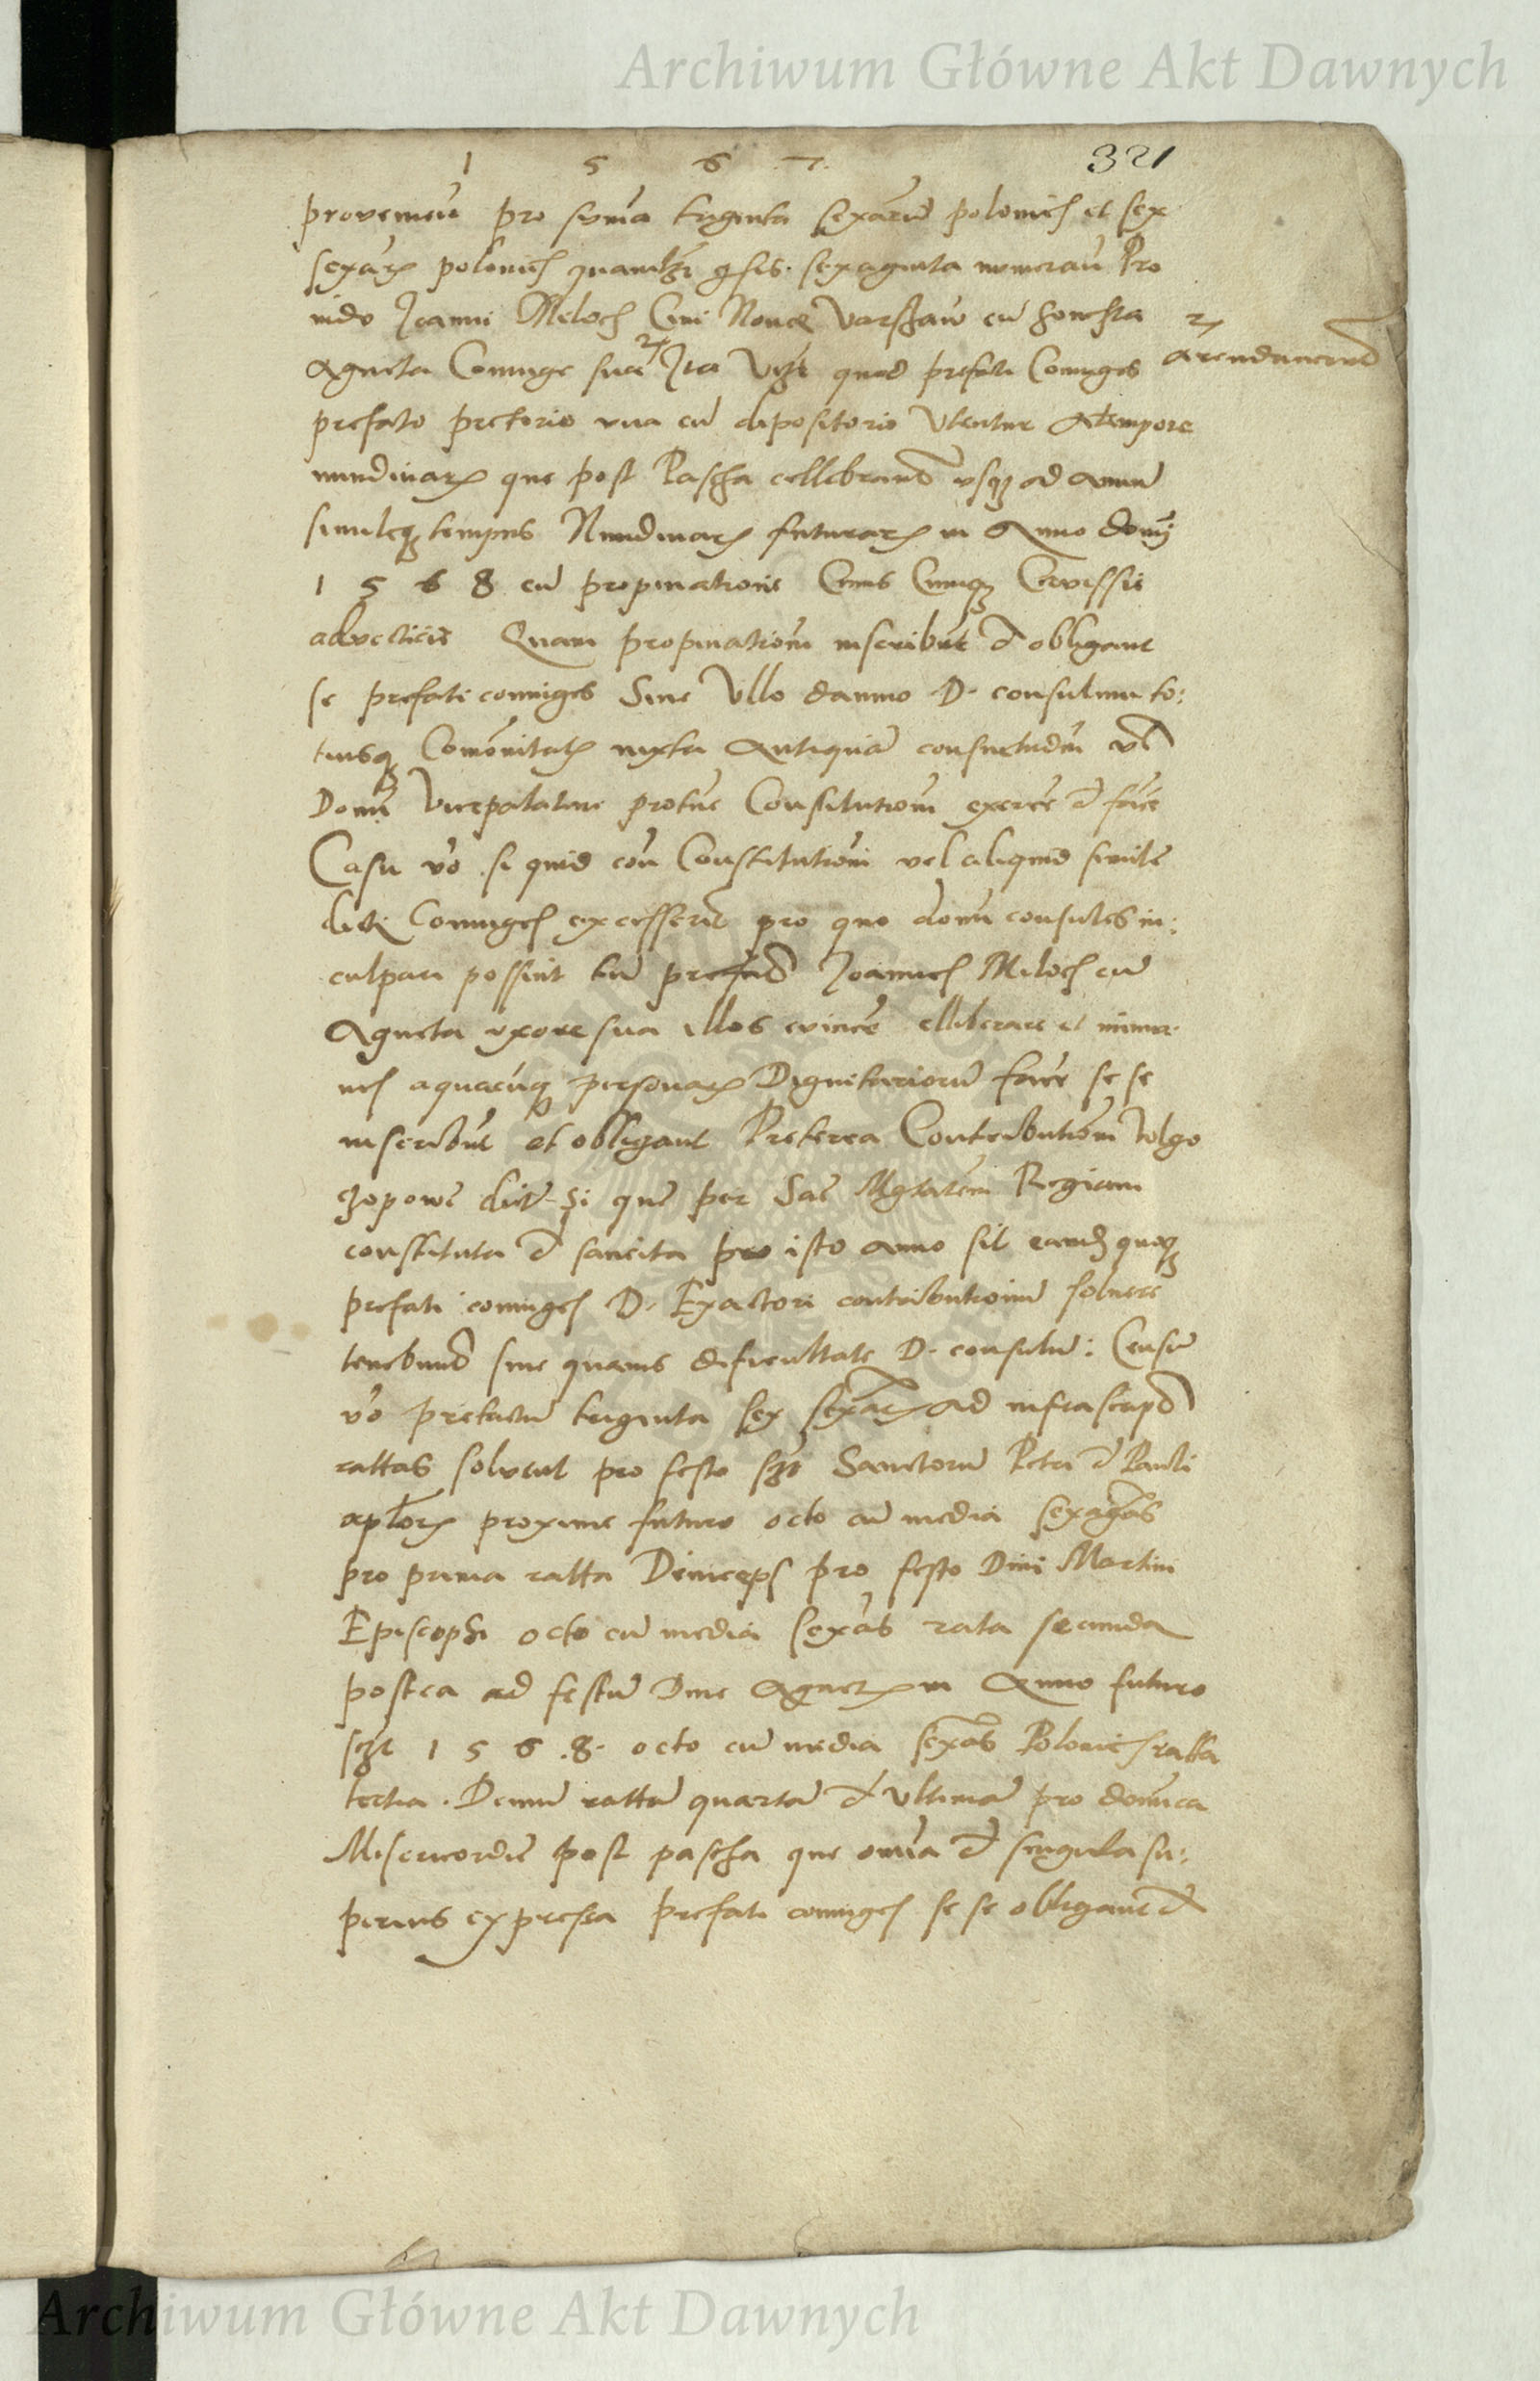 Archiwum Główne Akt Dawnych
1 5 6 7.
321
provenien pro suma triginta sexarum polonicš et sex
sexarz polonicš quamlzt gsis. sexaginta numeran Pro
vido Joanni Miloch Civi Nove Varschaw cu honesta
Agneta Coniuge sua Ita Vzt quod prefati Coniuges
arendaverunt
prefato pretorio una cu depositorio Utentur A tempore
nundinarz que post Pascha cellebrand usqz ad annu
simileqz tempus Nundinarz futurarz in Anno domj
1 5 6 8 cu propinatione Cervissie
advecticie Quam propination inscribut et obligant
se prefati coniuges Sine Ullo damno D. consulum to:
tiusqz Comunitatz iuxta Antiqua consuetudin
Domi Vicepalatini Constitution exercere et facere
Casu vo si quid con Constitution vel aliquid simile
dicti Coniuges excesserit pro quo domi consules in:
culpari possint tum prefatd Joannes Miloch cu
Agneta uxore sua illos evincere elliberare et immu
nes a quacuqz personarz Dignitariorum facere se se
inscribut et obligant Preterea Contribution Volgo
czopowe dict Si que per Sac Mgtatem Regiam
constituta et sancita pro isto anno sit eandz quoqz
prefati coniuges D. Exactori contributionum solvere
tenebund sine quavis dificultate D. consulum: Censu
vo prefactum triginta sex sexarz ad infrascriptd
rattas solvent pro festo szt Sanctorum Petri et Pauli
aplorz proxime futuro octo cu media sexagas
pro prima ratta Deinceps pro festo Divi Martini
Episcophi octo cu media sexas rata secunda
postea ad festum Dive Agnetz in Anno futuro
szt 1 5 6 8. octo cu media sexas Polonics ratta
tertia. Demum rattam quartam et Ultimam pro domica
Misericordie post pascha que omia et singula su:
perius expressa prefati coniuges se se obligant et
Archiwum Główne Akt Dawnych